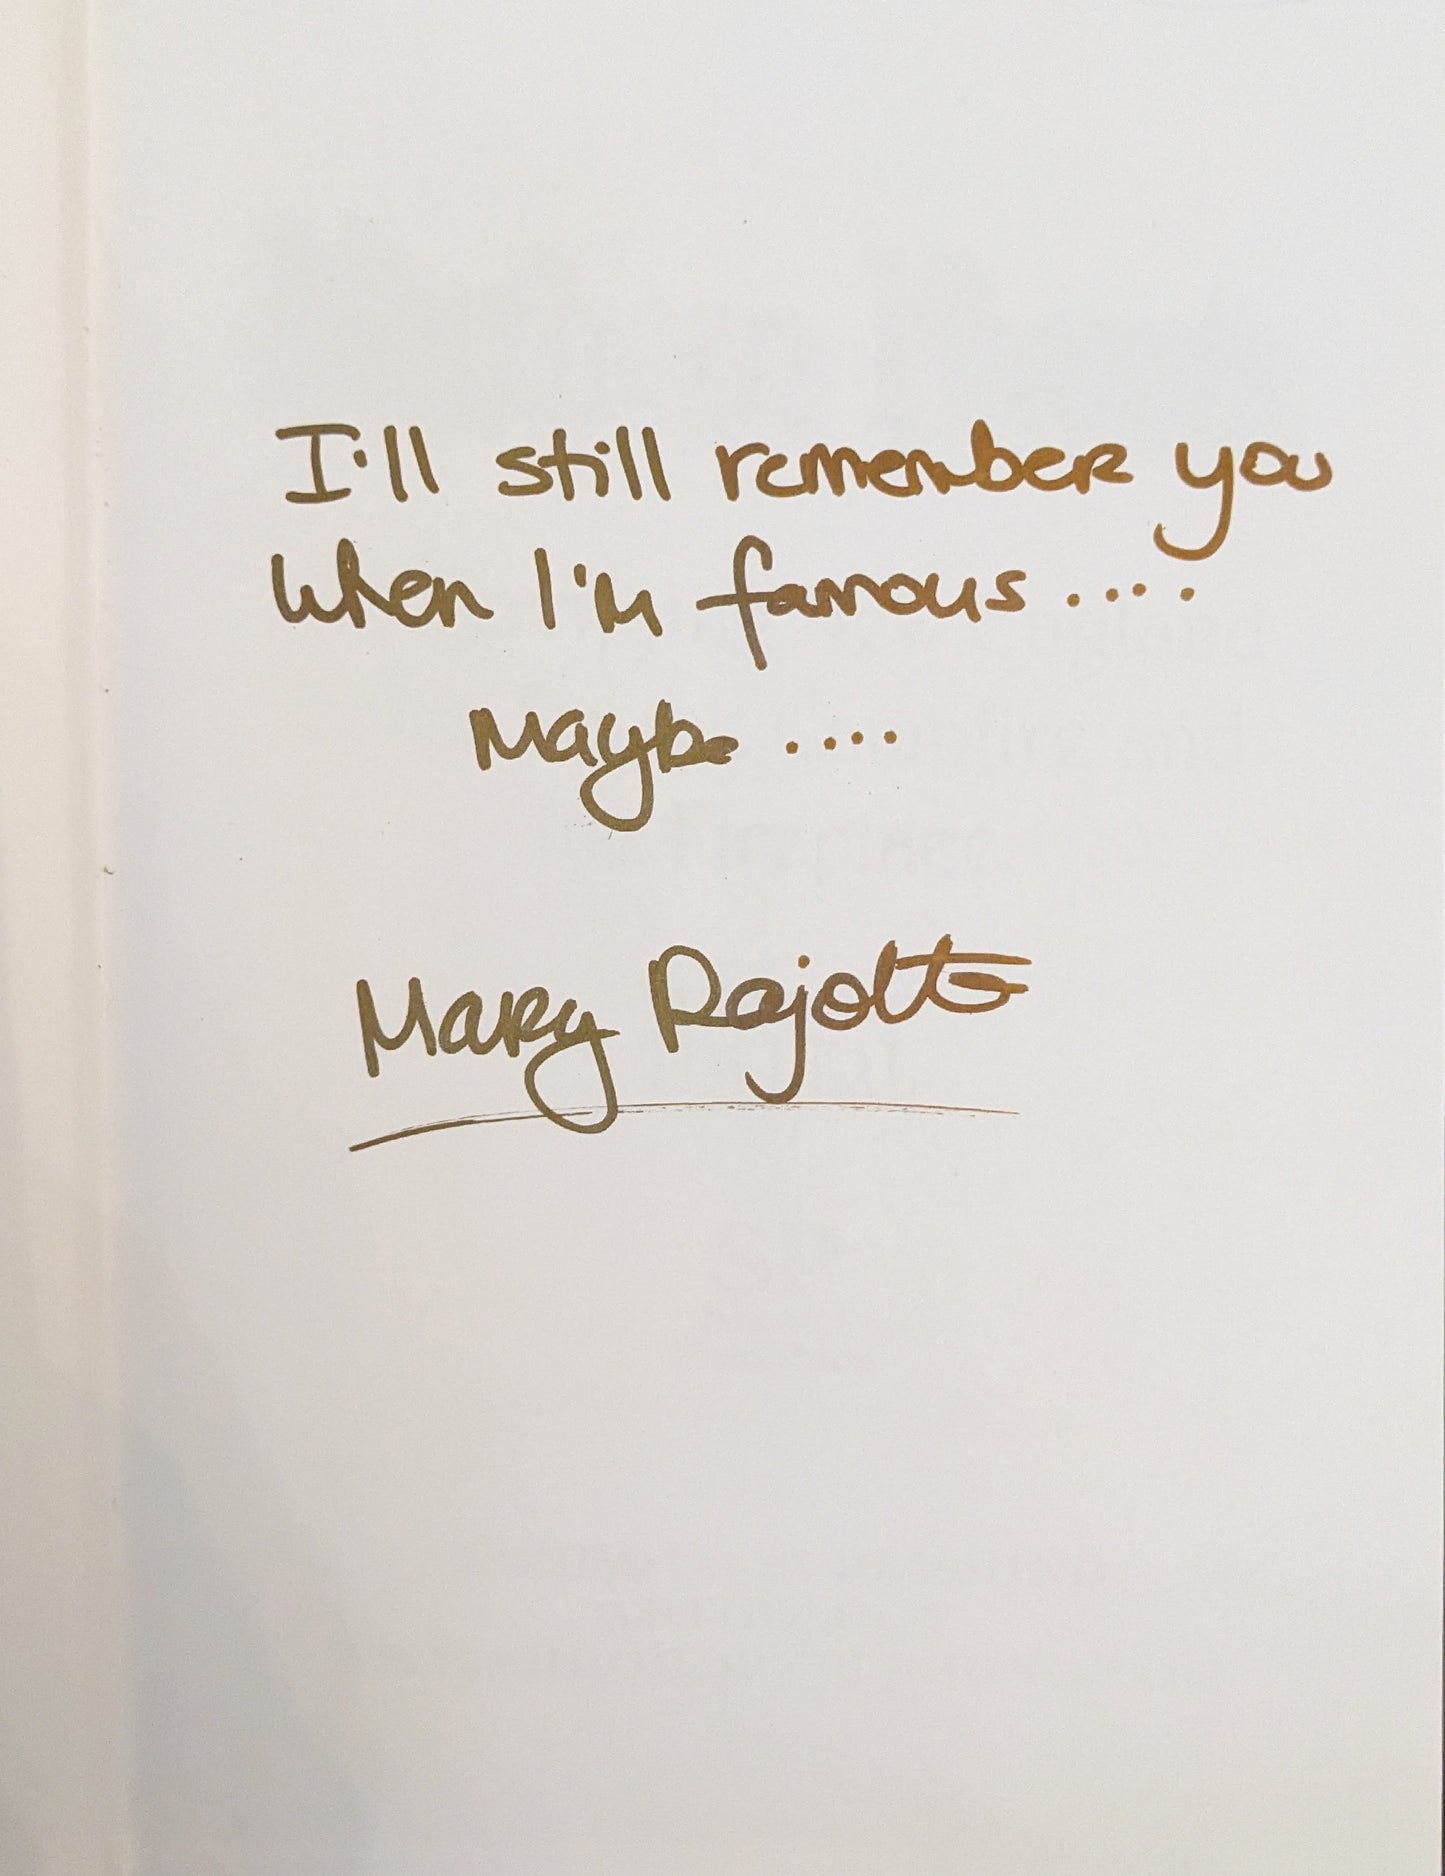 I'll still remember you
when I'm famous ....
Maybe ....
Mary Rajotte